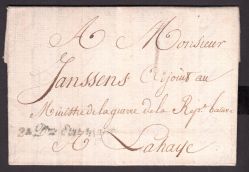 A Monsieur
Janssens Adjoint au
Ministre de la guerre de la Rep.^e batave
A Lahaye